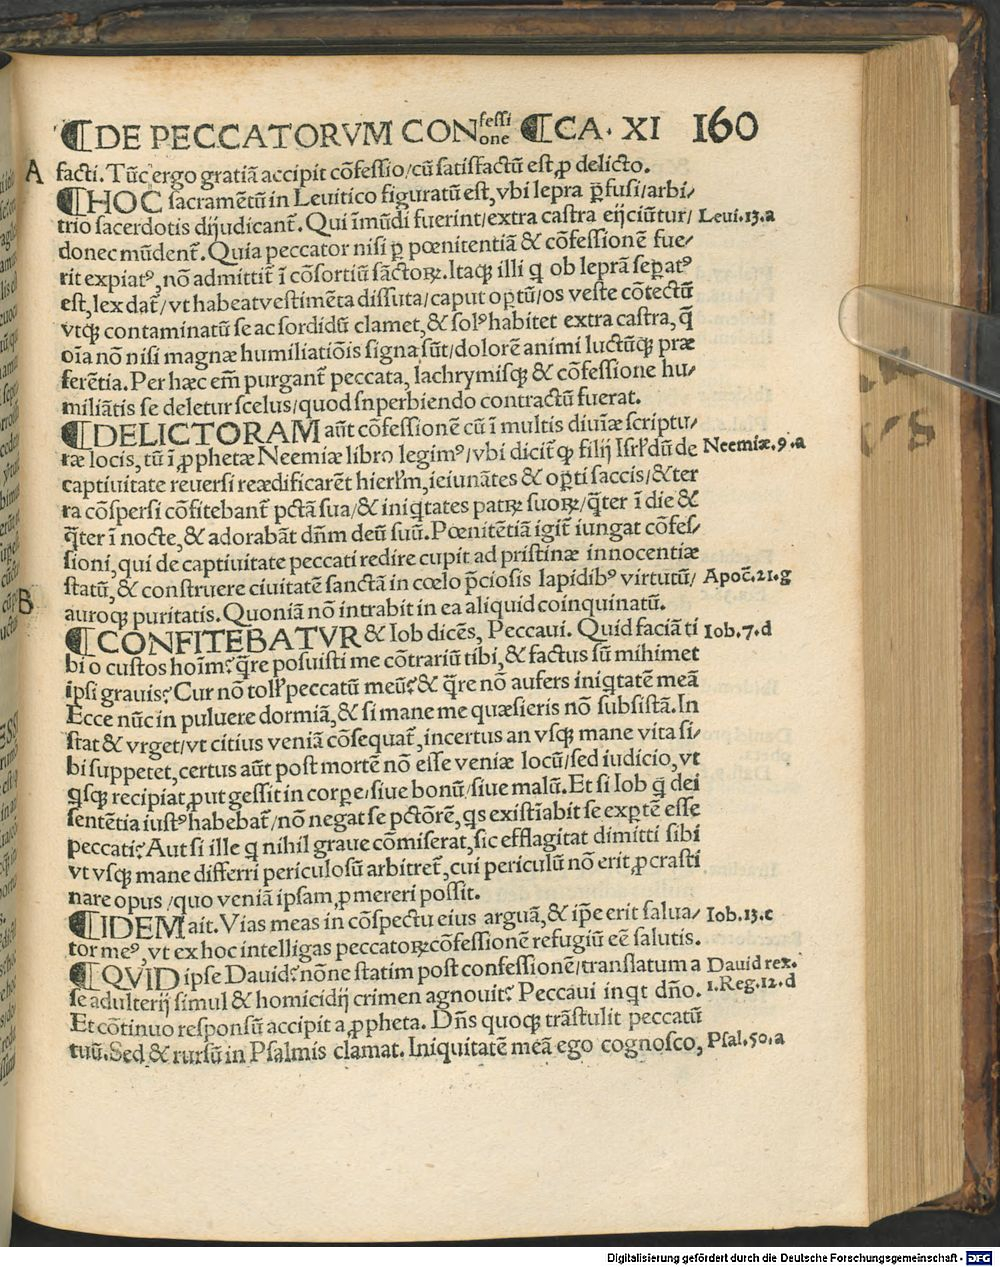 ¶DE PECCATORVM CONfessione ¶CA. XI 160
A facti. Tūc ergo gratiā accipit cōfessio/cū satisfactū est ꝓ delicto.
¶HOC sacramētū in Leuitico figuratū est, vbi lepra ꝑfusi/arbi/
trio sacerdotis dijudicant̄. Qui īmūdi fuerint/extra castra eijciūtur/ Leui.13.a
donec mūdent̄. Quia peccator nisi ꝑ pœnitentiā & cōfessionē fue/
rit expiatꝰ, nō admittit̄ ī cōsortiū sāctoꝝ. Itaqꝫ illi q̄ ob leprā seꝑatꝰ
est, lex dat̄/vt habeat vestimēta dissuta/caput oꝑtū/os veste cōtectū
vtqꝫ contaminatū se ac sordidū clamet, & solꝰ habitet extra castra, q̄
oīa nō nisi magnæ humiliatiōis signa sūt/dolorē animi luctūqꝫ præ
ferētia. Per hæc em̄ purgant̄ peccata, lachrymisqꝫ & cōfessione hu/
miliātis se deletur scelus/quod snperbiendo contractū fuerat.
¶DELICTORAM aūt cōfessionē cū ī multis diuiæ scriptu/
ræ locis, tū ī ꝓphetæ Neemiæ libro legimꝰ/vbi dicit̄ ꝙ filij Isrl̄ dū de Neemiæ.9.a
captiuitate reuersi reædificarēt hierl̄m, ieiunātes & oꝑti saccis/& ter
ra cōspersi cōfitebant̄ pctā sua/& iniq̄tates patꝝ suoꝝ/q̄ter ī die &
q̄ter ī nocte, & adorabāt dn̄m deū suū. Pœnitētiā igit̄ iungat cōfes/
sioni, qui de captiuitate peccati redire cupit ad pristinæ innocentiæ
statū, & construere ciuitatē sanctā in cœlo p̄ciosis lapidibꝰ virtutū/ Apoc̄.21.g
B auroqꝫ puritatis. Quoniā nō intrabit in ea aliquid coinquinatū.
¶CONFITEBATVR & Iob dicēs, Peccaui. Quid faciā ti Iob.7.d
bi o custos hoīm? q̄re posuisti me cōtrariū tibi, & factus sū mihimet
ipsi grauis? Cur nō toll̄ peccatū meū? & q̄re nō aufers iniq̄tatē meā
Ecce nūc in puluere dormiā, & si mane me quæsieris nō subsistā. In
stat & vrget/vt citius veniā cōsequat̄, incertus an vsqꝫ mane vita si/
bi suppetet, certus aūt post mortē nō esse veniæ locū/sed iudicio, vt
q̄sqꝫ recipiat ꝓut gessit in corꝑe/siue bonū/siue malū. Et si Iob q̄ dei
sentētia iustꝰ habebat̄/nō negat se pctōrē, q̄s existīabit se exꝑtē esse
peccati? Aut si ille q̄ nihil graue cōmiserat, sic efflagitat dimitti sibi
vt vsqꝫ mane differri periculosū arbitret̄, cui periculū nō erit ꝓcrasti
nare opus /quo veniā ipsam ꝓmereri possit.
¶IDEM ait. Vias meas in cōspectu eius arguā, & ip̄e erit salua/ Iob.13.c
tor meꝰ, vt ex hoc intelligas peccatoꝝ cōfessionē refugiū eē salutis.
¶QVID ipse Dauid? nōne statim post confessionē/translatum a Dauid rex.
se adulterij simul & homicidij crimen agnouit? Peccaui inq̄t dn̄o. 1.Reg.12.d
Et cōtinuo responsū accipit a ꝓpheta. Dn̄s quoqꝫ trāstulit peccatū
tuū. Sed & rursū in Psalmis clamat. Iniquitatē meā ego cognosco, Psal.50.a
Digitalisierung gefördert durch die Deutsche Forschungsgemeinschaft - DFG